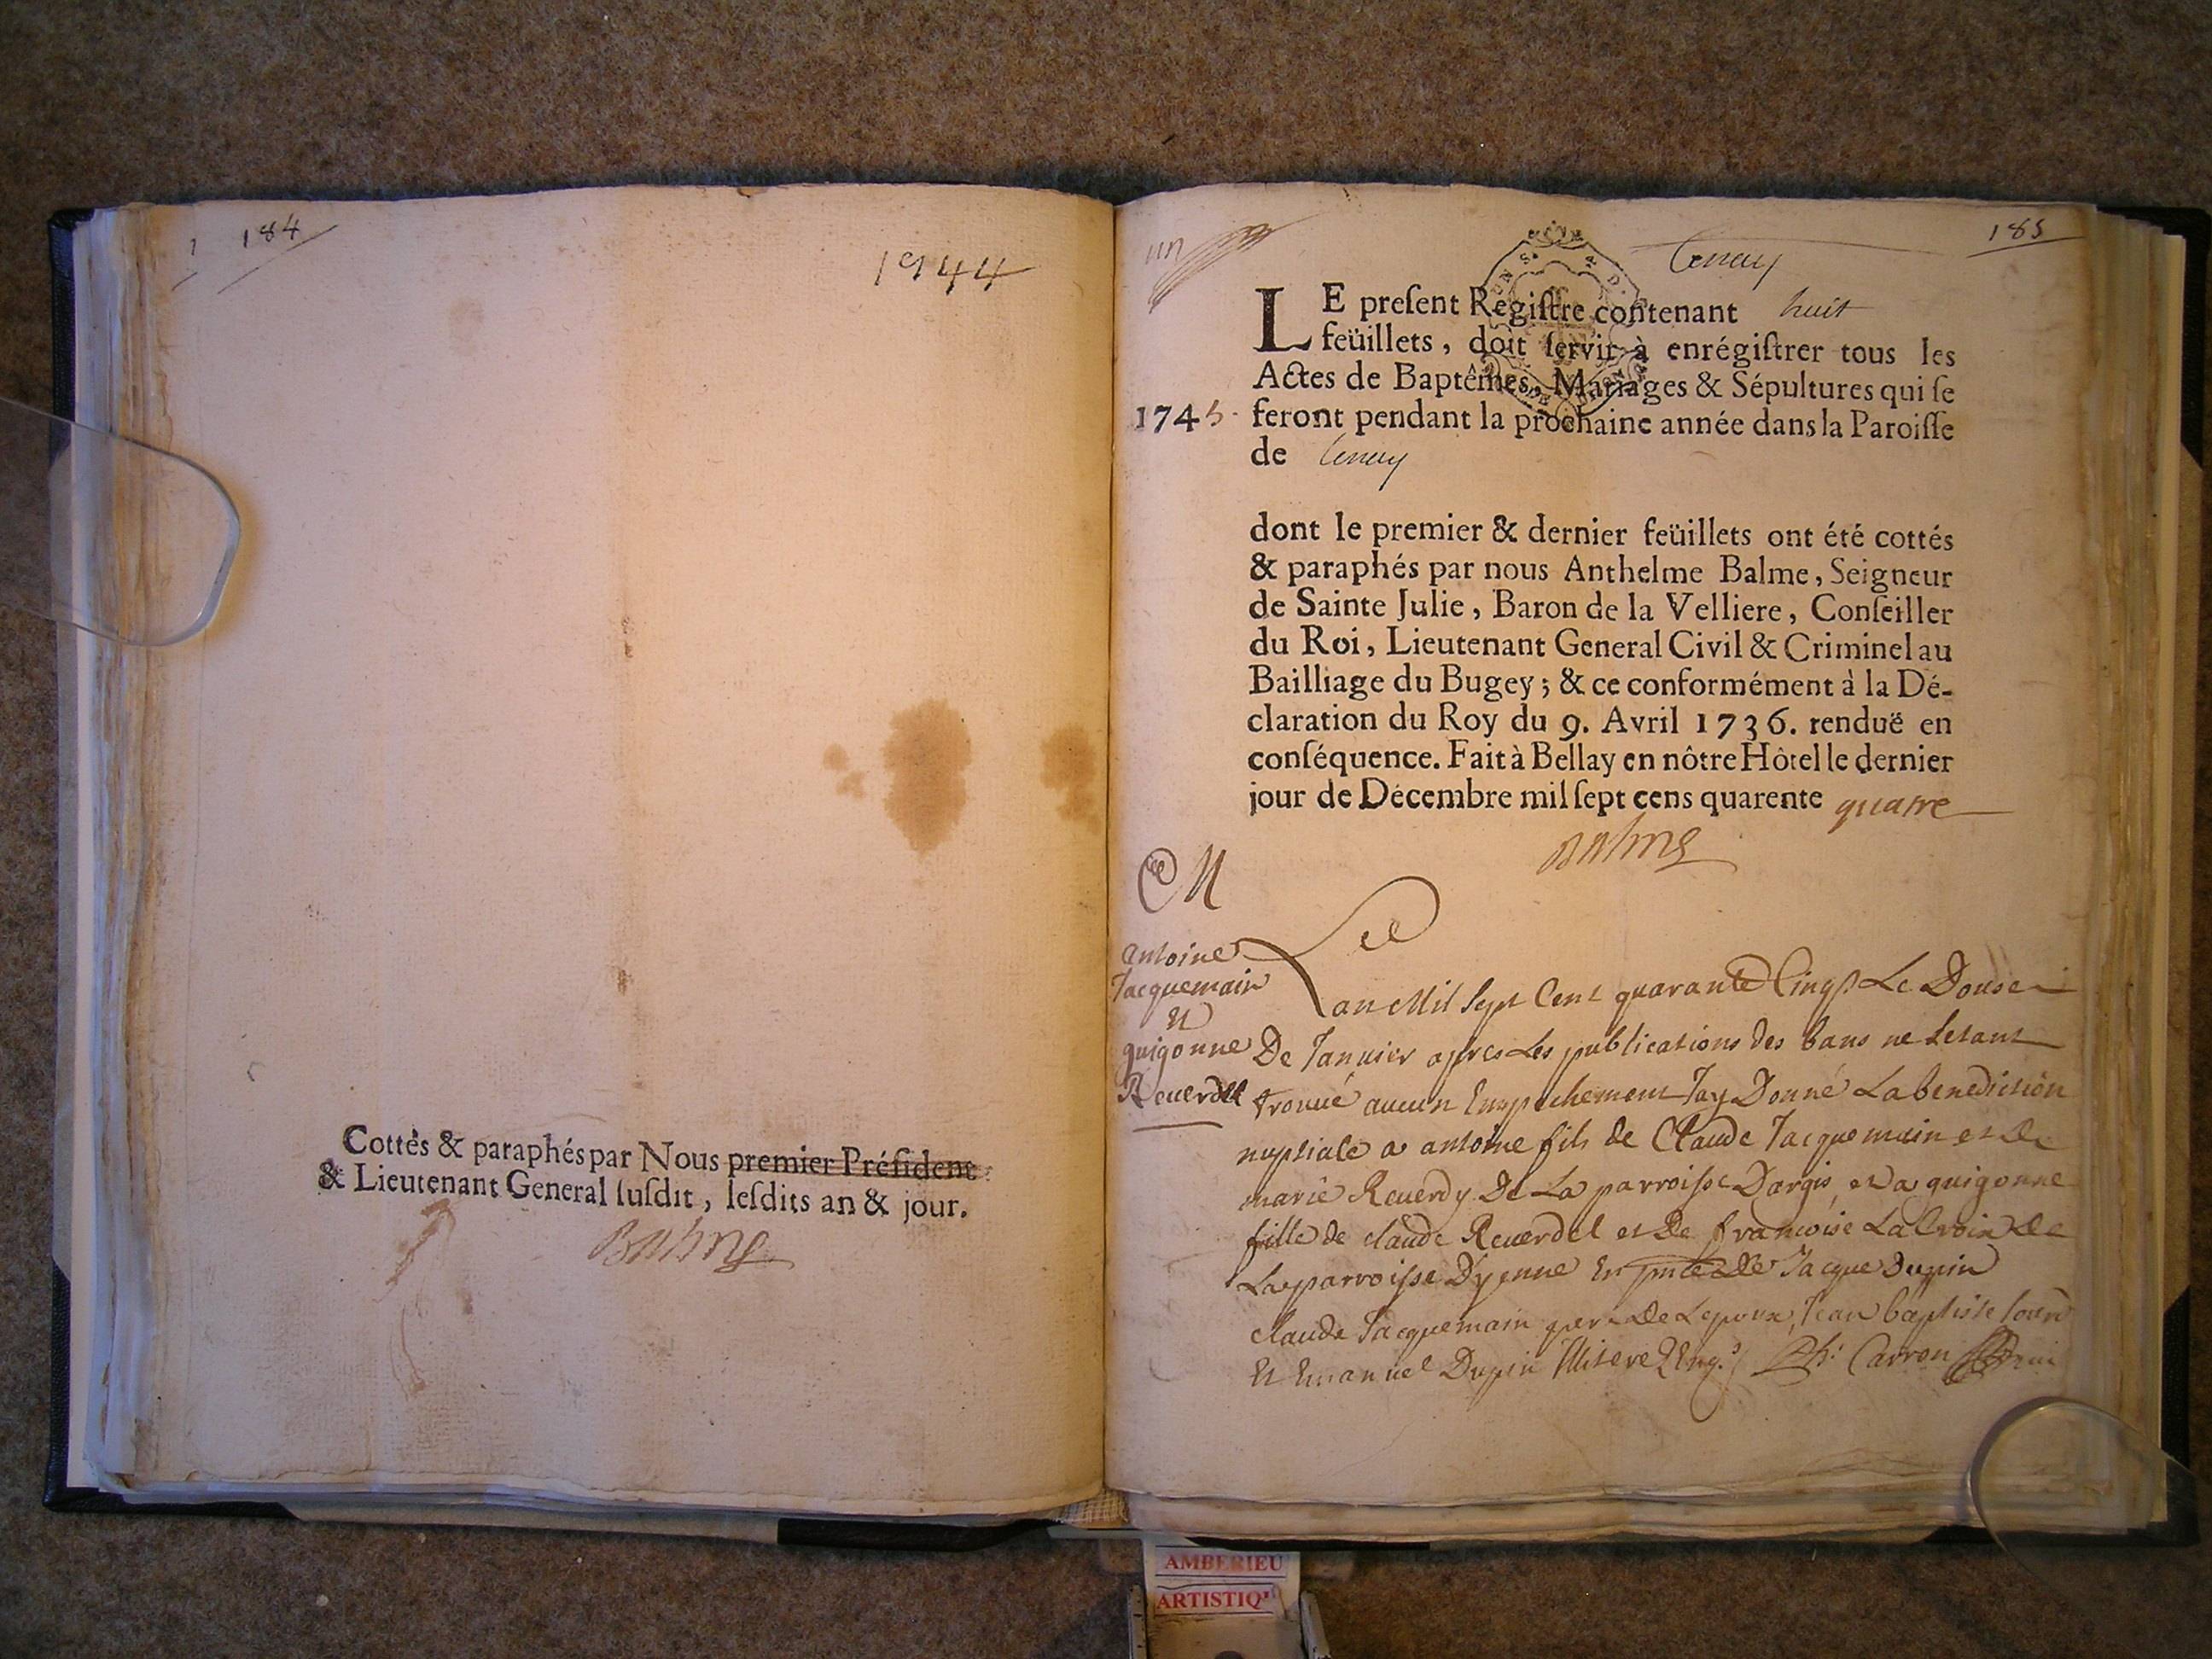 184
1944
Cottés & paraphés par Nous premier Préſident
& Lieutenant General ſuſdit, leſdits an & jour.
Balme
un
185
Tenay
LE preſent Regiſtre contenant huit
feüillets, doit ſervir à enrégiſtrer tous les
Actes de Baptêmes, Mariages & Sépultures qui ſe
1745. feront pendant la prochaine année dans la Paroiſſe
de Tenay
dont le premier & dernier feüillets ont été cottés
& paraphés par nous Anthelme Balme, Seigneur
de Sainte Julie, Baron de la Velliere, Conſeiller
du Roi, Lieutenant General Civil & Criminel au
Bailliage du Bugey; & ce conformément à la Dé-
claration du Roy du 9. Avril 1736. renduë en
conſéquence. Fait à Bellay en nôtre Hôtel le dernier
jour de Décembre mil ſept cens quarente quatre
Balme
M
antoine
Jacquemain
et
guigonne
Reuerdel
Lan Mil Sept Cent quarante Cinq Le Douse
De Januier apres Les publications des bans ne sestant
trouué aucun Empechement Jay Donné La benediction
nuptiale a antoine fils de Claude Jacquemain et de
marie Reuerdy De La parroisse Dargis, et a guigonne
fille de claude Reuerdel et De francoise La Croix de
La parroisse Dyenne En pnce De Jacque Dupin
claude Jacquemain pere De Lepoux, Jean baptiste
Et Emanuel Dupin Ph: Carron
AMBERIEU
ARTISTIQ